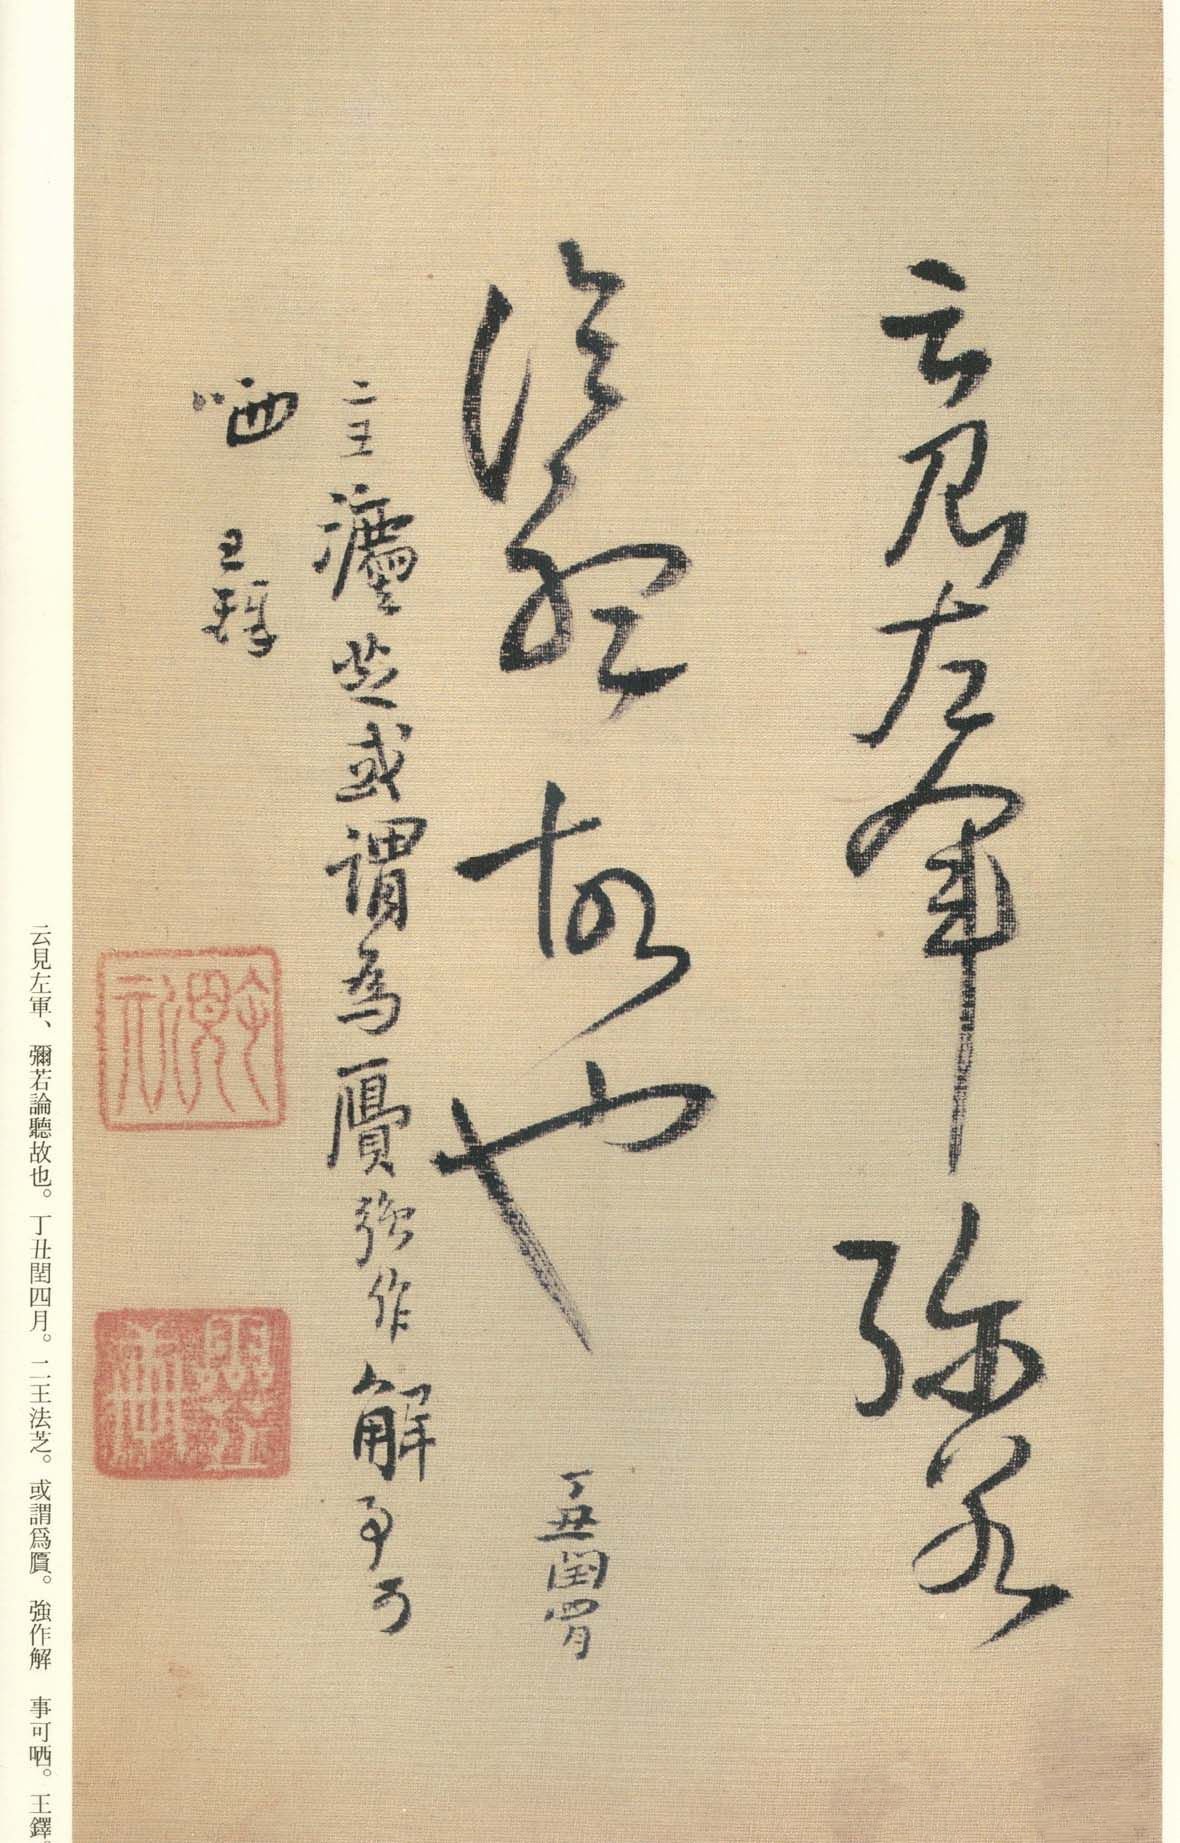 云見左軍弥若
論聽故也
丁丑閏四月
二王灋芝或謂為贗強作解事可
哂 王鐸
云見左軍、彌若論聽故也。丁丑閏四月。二王法芝。或謂爲贗。強作解　事可哂。王鐸。